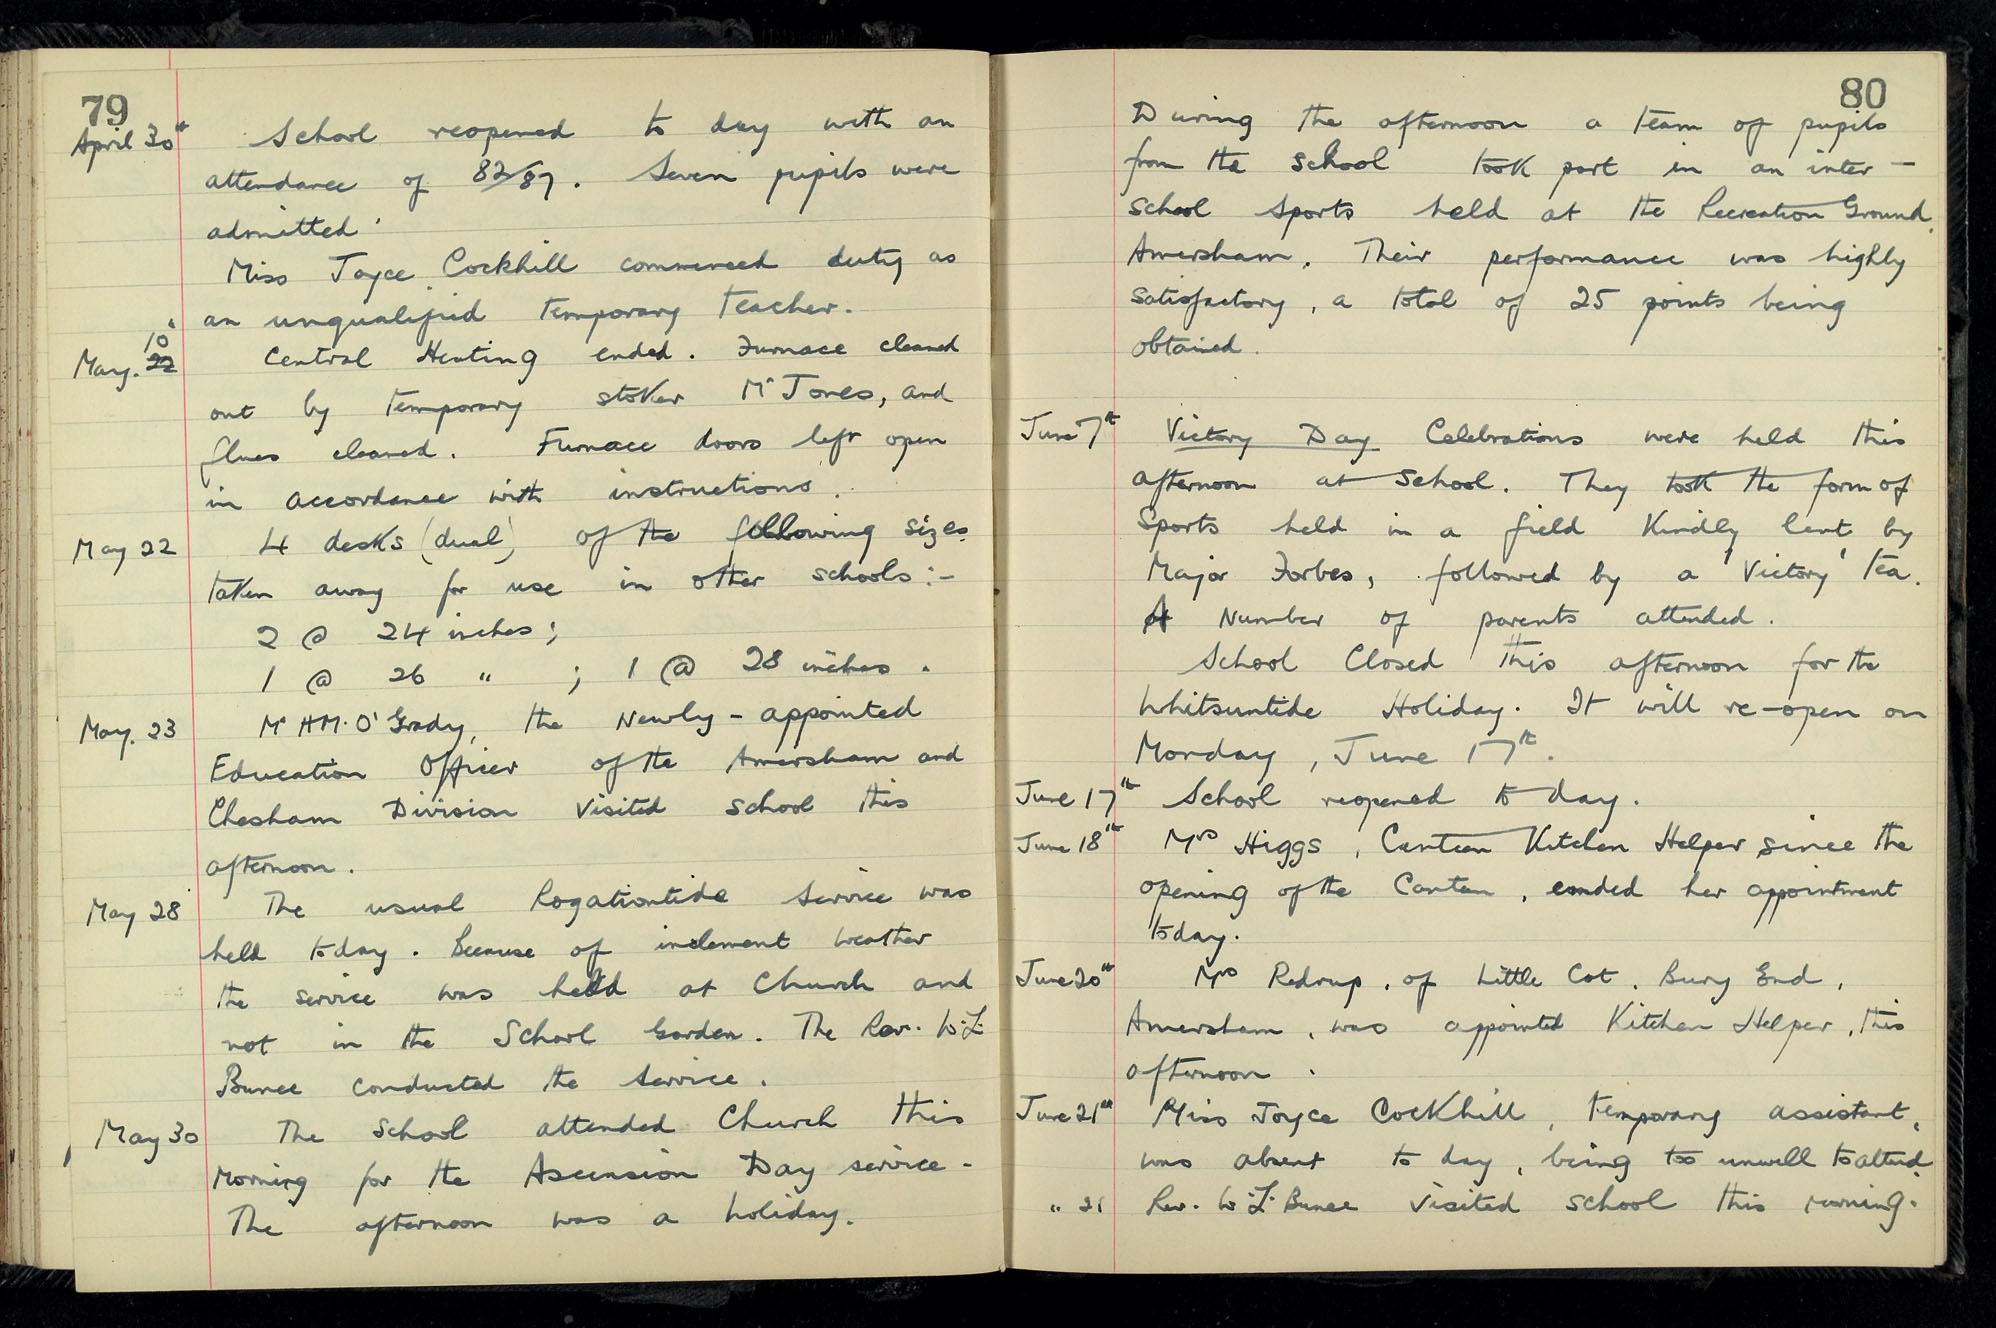 79
April 30th School reopened to day with an
attendance of 82/87. Seven pupils were
admitted.
Miss Joyce Cockhill commenced duty as
an unqualified temporary teacher.
10
May. 22 Central Heating ended. Furnace cleaned
out by temporary stoker Mr Jones, and
flues cleaned. Furnace doors left open
in accordance with instructions.
May 22 4 desks (dual) of the following sizes
taken away for use in other schools:-
2 @ 24 inches;
1 @ 26 " ; 1 @ 28 inches.
May. 23 Mr H.M. O'Grady, the Newly-appointed
Education Officer of the Amersham and
Chesham Division visited school this
afternoon.
May 28 The usual Rogationtide Service was
held today. Because of inclement weather
the service was held at Church and
not in the School Garden. The Rev. W.L.
Bunce conducted the service.
May 30 The School attended Church this
morning for the Ascension Day service.
The afternoon was a holiday.
80
During the afternoon a team of pupils
from the school took part in an inter-
school sports held at the Recreation Ground,
Amersham. Their performance was highly
satisfactory, a total of 25 points being
obtained.
June 7th Victory Day Celebrations were held this
afternoon at School. They took the form of
Sports held in a field kindly lent by
Major Forbes, followed by a 'Victory' Tea.
A Number of parents attended.
School Closed this afternoon for the
Whitsuntide Holiday. It will re-open on
Monday, June 17th.
June 17th School reopened to day.
June 18th Mrs Higgs, Canteen Kitchen Helper since the
opening of the Canteen, ended her appointment
today.
June 20th Mrs Redrup, of Little Cot, Bury End,
Amersham, was appointed Kitchen Helper, this
afternoon.
June 21st Miss Joyce Cockhill, temporary assistant,
was absent to day, being too unwell to attend.
" 21 Rev. W.L. Bunce visited school this morning.